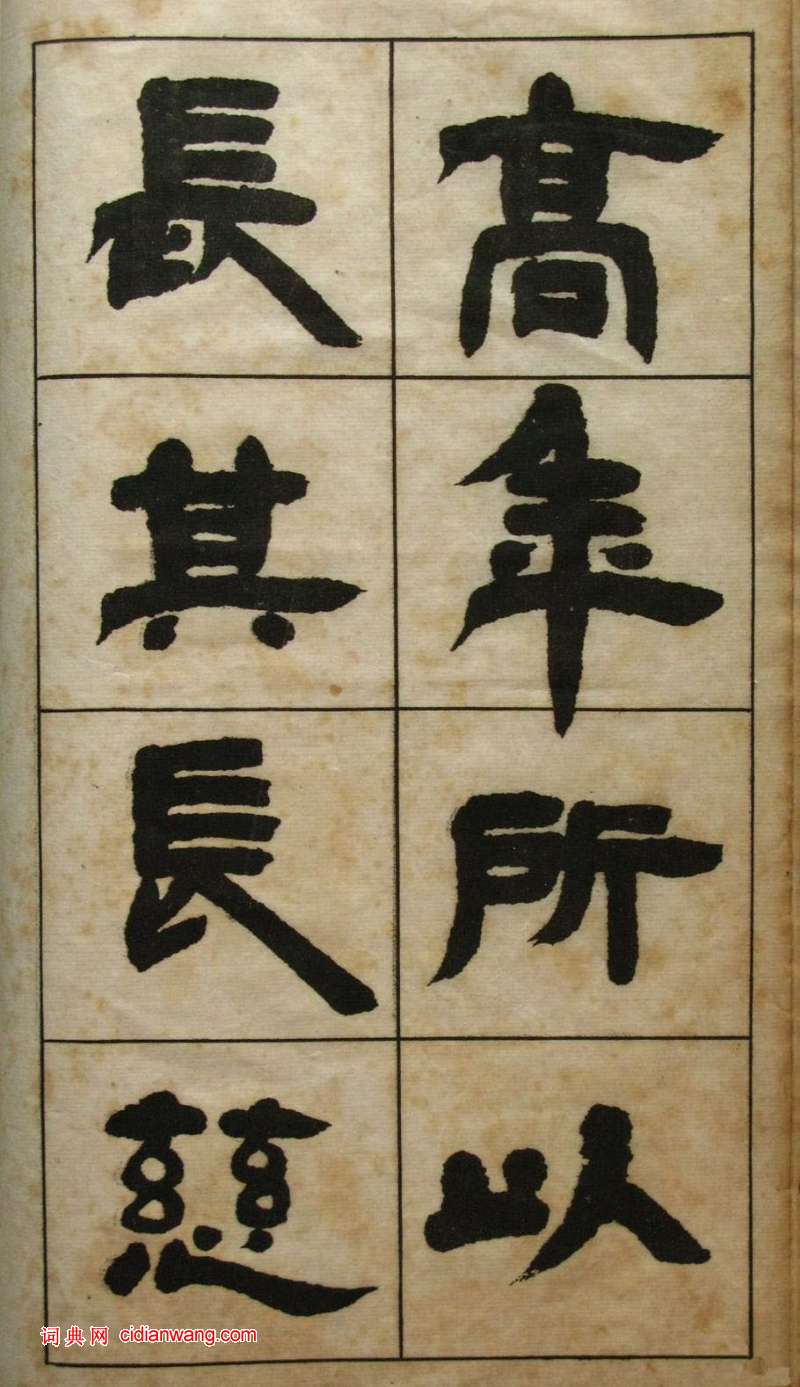 高年所以
長其長慈
词典网 cidianwang.com